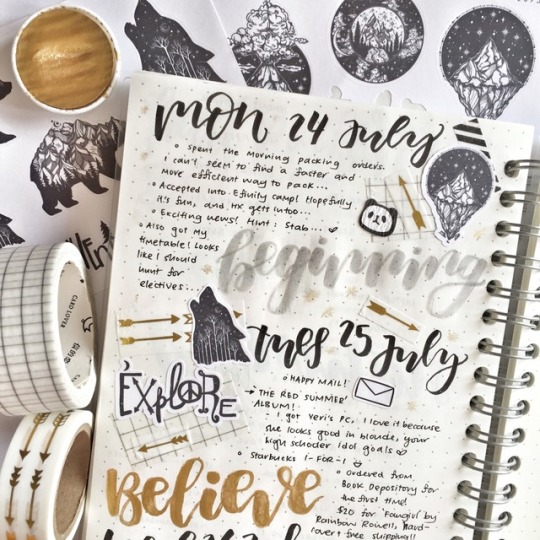 mon 24 July
◦ Spent the morning packing orders.
I can't seem to find a faster and
more efficient way to pack...
◦ Accepted into Efinity camp! Hopefully
it's fun, and HX gets in too...
◦ Exciting news! Hint: Stab... ♥
◦ Also got my
timetable! Looks
like I should
hunt for
electives...
beginning
tues 25 July
◦ HAPPY MAIL!
→ 'THE RED SUMMER'
ALBUM!
◦ I got Yeri's PC, I love it because
she looks good in blonde, your
high schooler idol goals
◦ Starbucks 1-FOR-1
EXPloRE
◦ ordered from
Book Depository for
the first time!
$20 for 'Fangirl' by
Rainbow Rowell, hard-
cover + free shipping!!
Believe
CARD LOVER